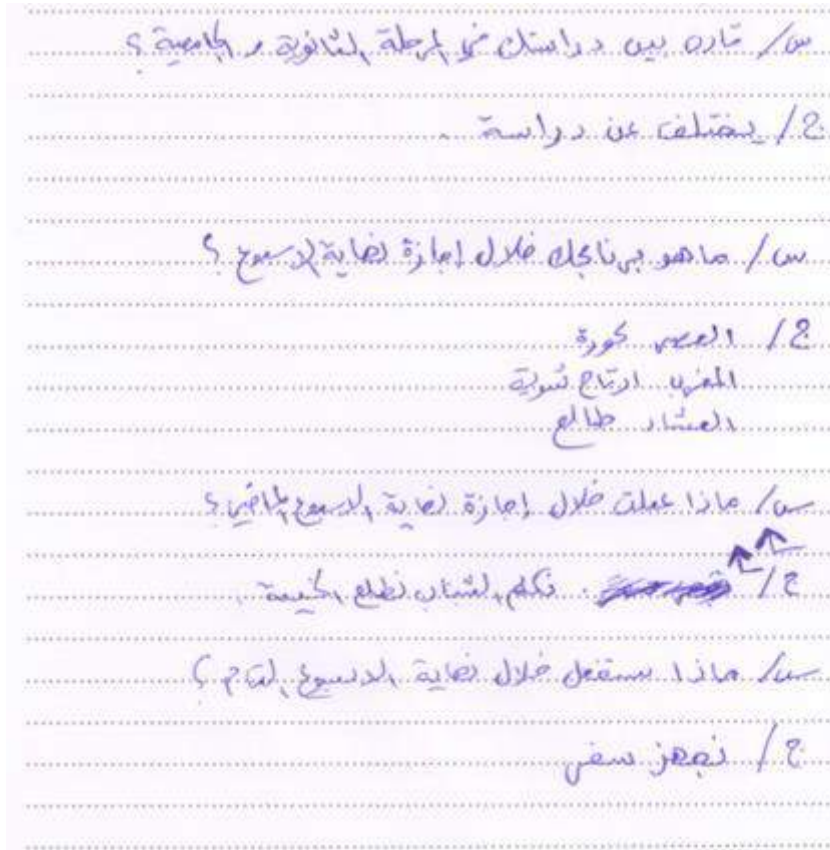 س/ قارن بين دراستك في المرحلة الثانوية و الجامعية ؟
ج/ يختلف عن دراسة .
س/ ما هو برنامجك خلال إجازة نهاية الاسبوع ؟
ج/ العصر كورة
المغرب ارتاح شوية
العشاء طالع
س/ ماذا عملت خلال إجازة نهاية الاسبوع الماضي ؟
ج/ . نكلم الشباب نطلع الخيمة .
س/ ماذا ستفعل خلال نهاية الاسبوع القادم ؟
ج/ نجهز سفر